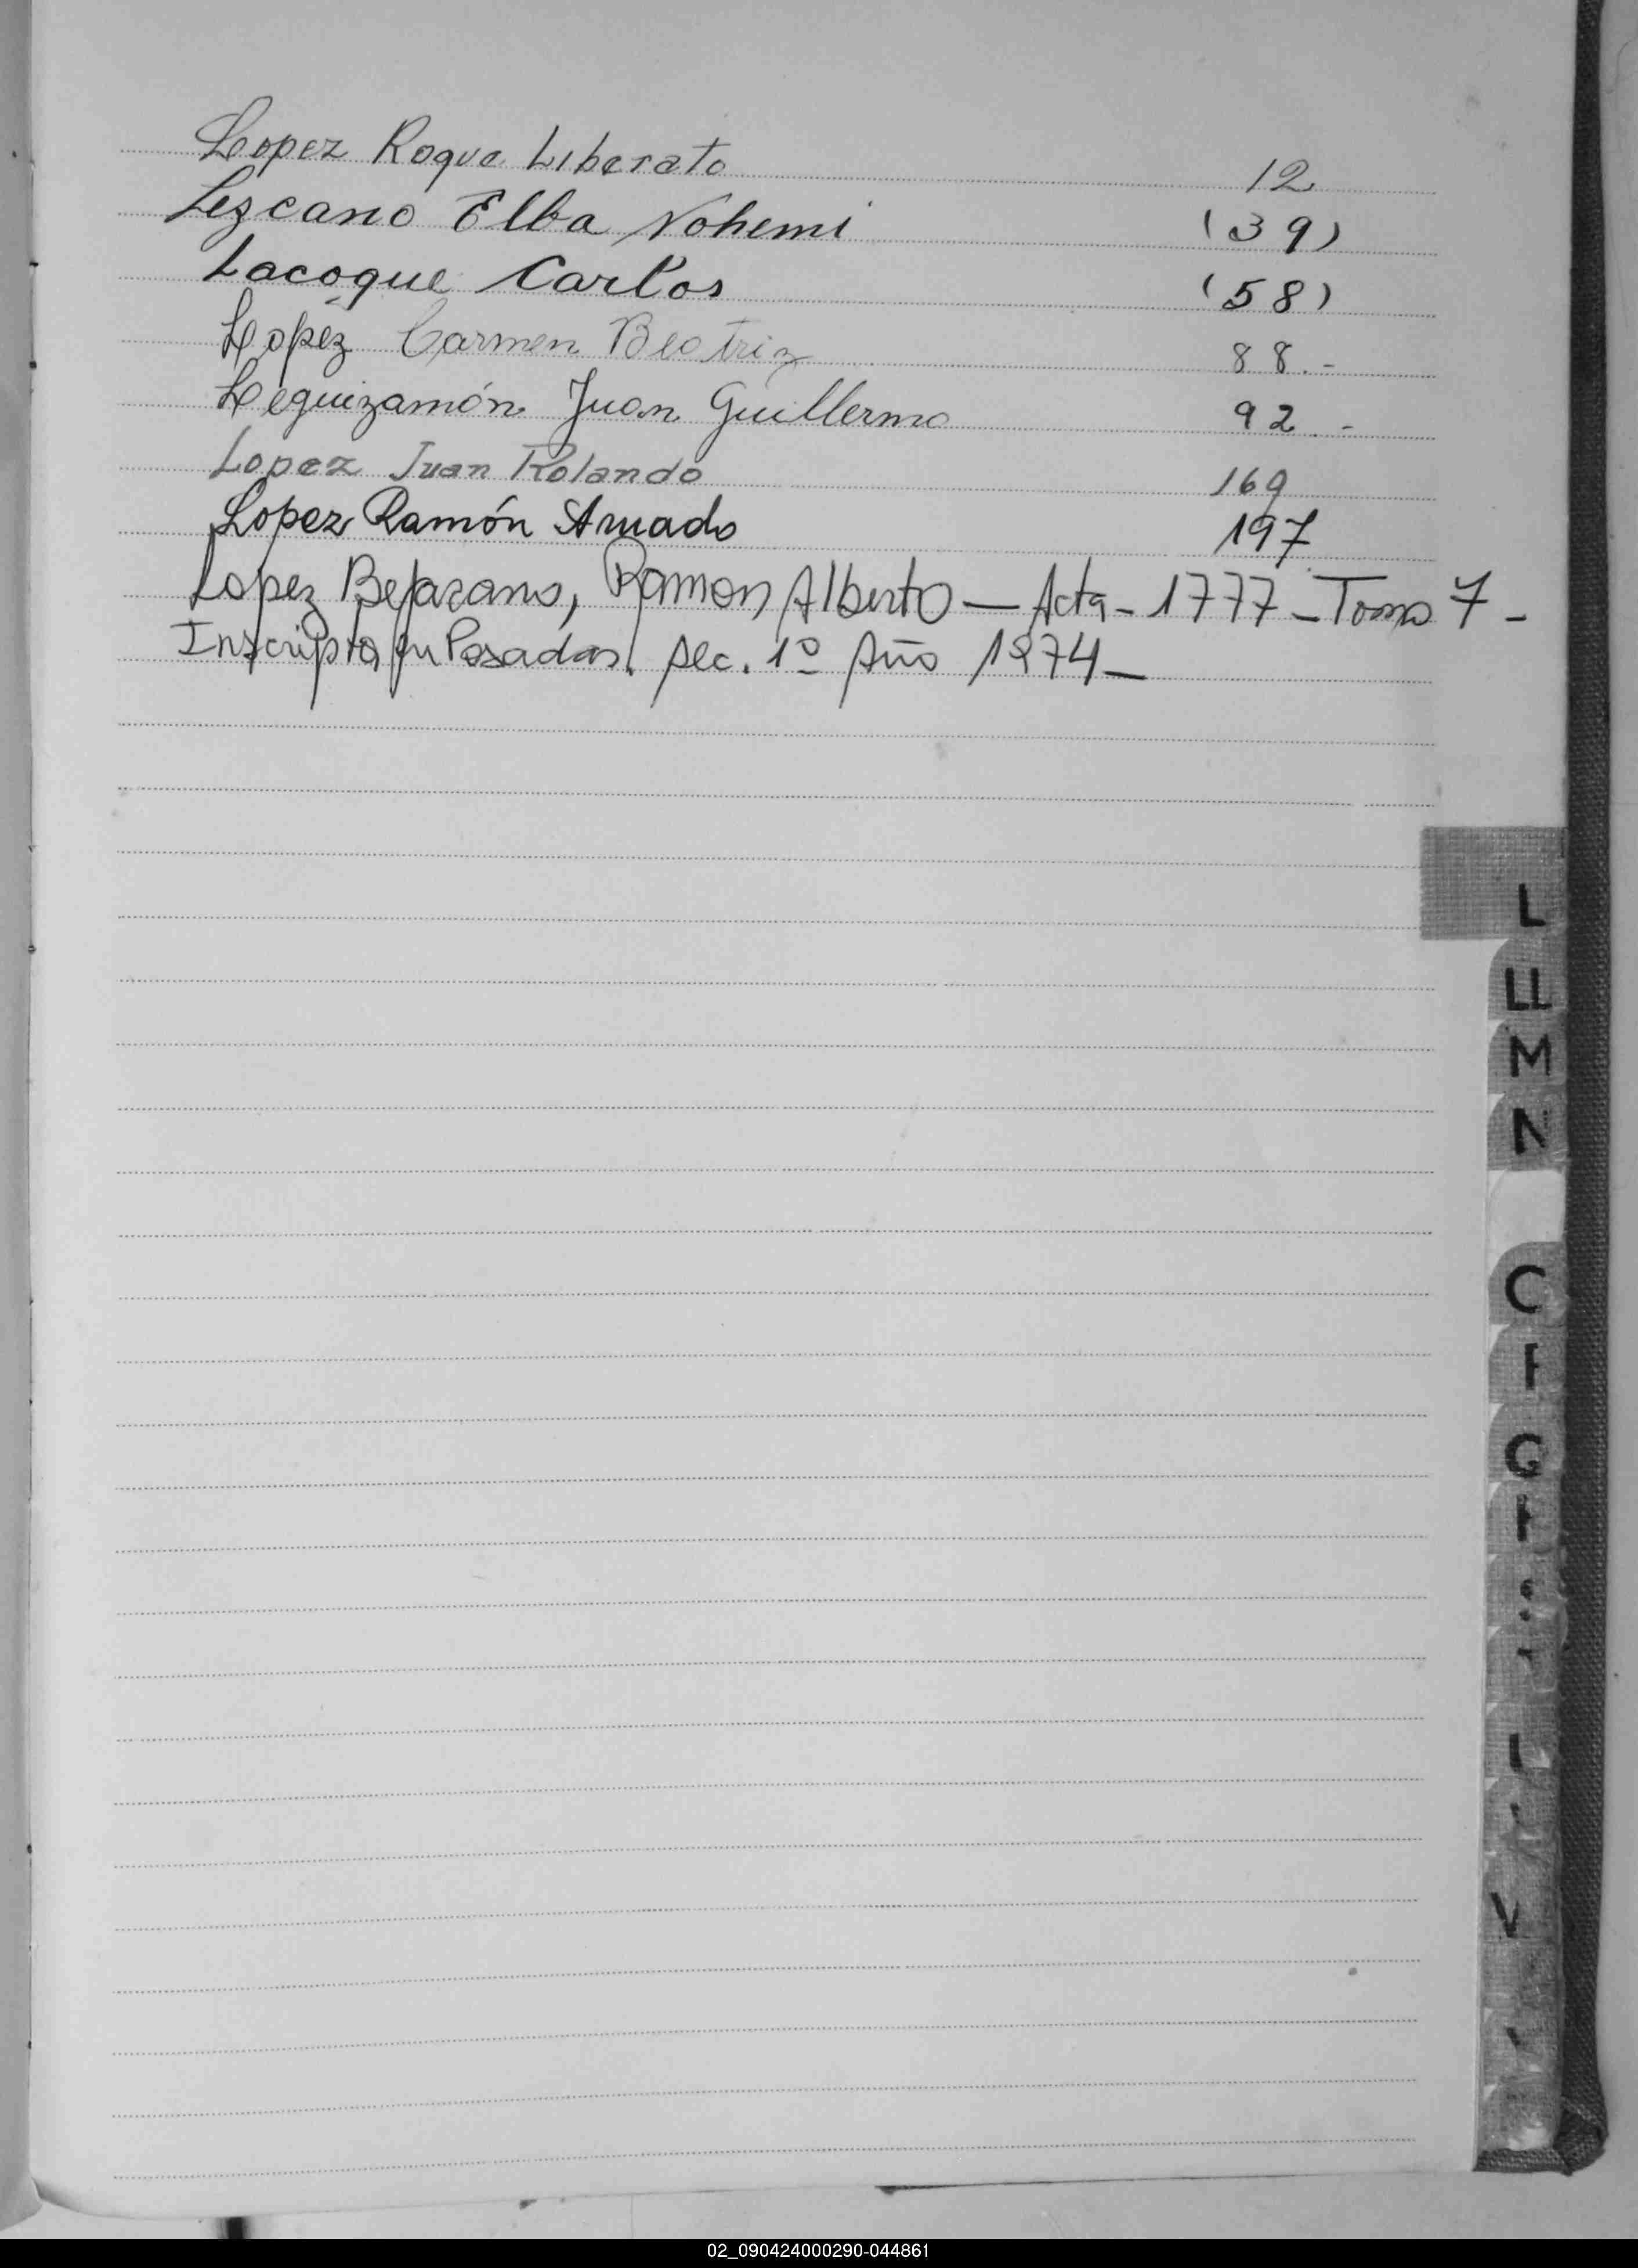 Lopez Roque Liberato 12
Lezcano Elba Nohemi (39)
Lacoque Carlos (58)
Lopez Carmen Beatriz 88.-
Leguizamón Juan Guillermo 92.-
Lopez Juan Rolando 169
Lopez Ramón Amado 197
Lopez Bejarano, Ramon Alberto — Acta - 1777 - Tomo 7 -
Inscripta en Posadas. sec. 1º Año 1974 -
L
LL
M
N
C
G
V
02_090424000290-044861